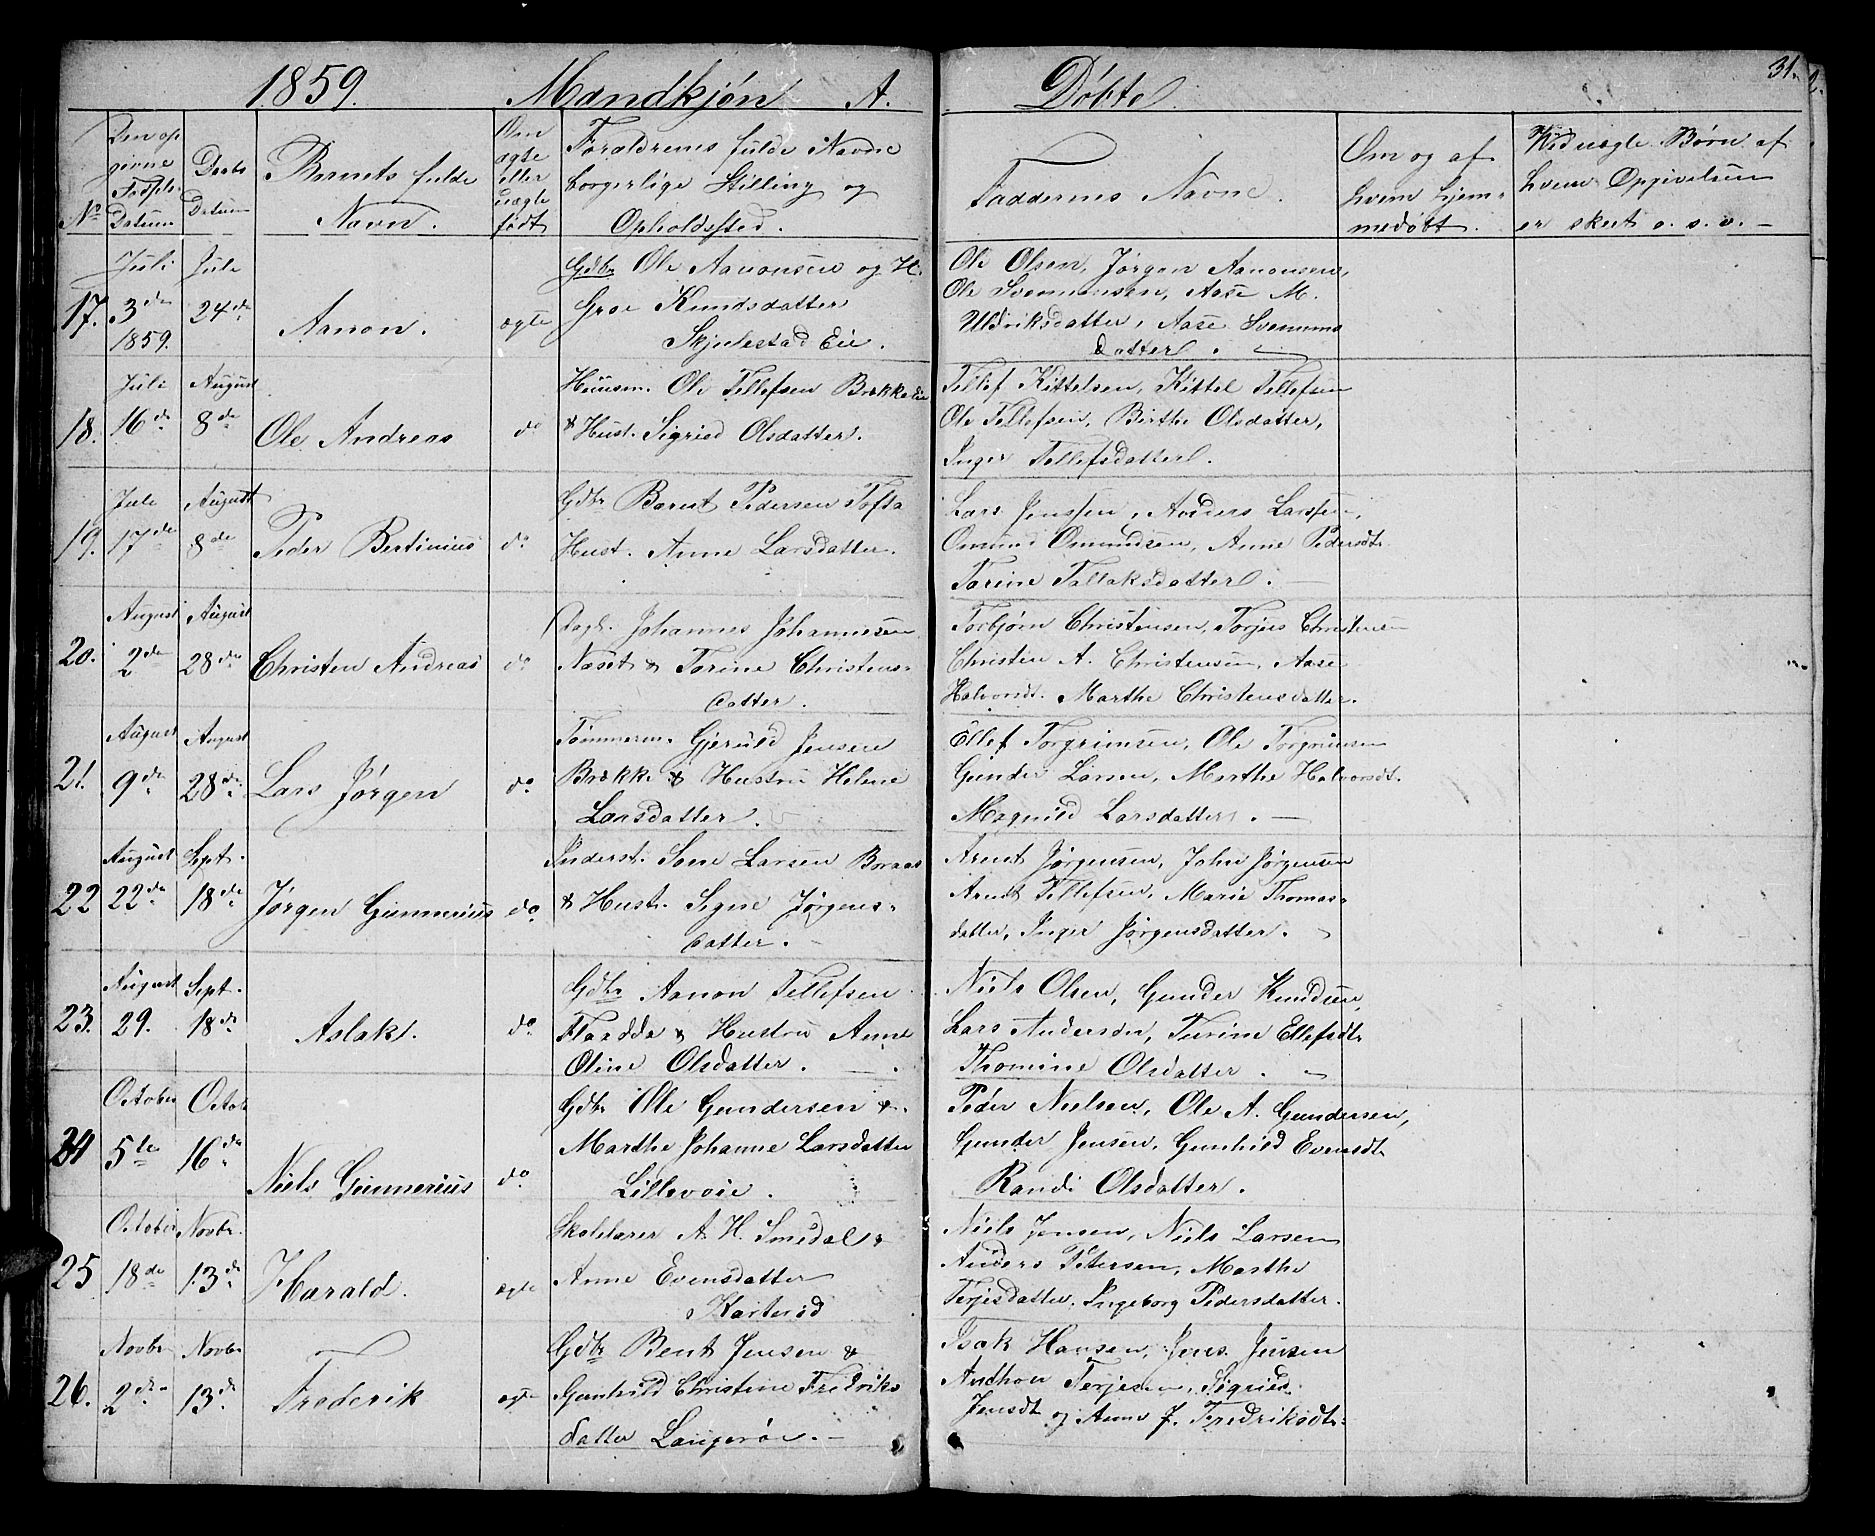 1859. Mandkjøn A. Døbte 31.
No
Den opgivne Fødsels Datum
Daabs Datum
Barnets fulde Navn.
Om ægte eller uægte født
Forældrenes fulde Navne borgerlige Stilling og Opholdssted.
Faddernes Navne.
Om og af hvem hjemmedøbt.
Ved uægte Børn af hvem Opgivelsen er skeet o. s. v. –
17. Juli 3die 1859. Juli 24de Aanon. ægte
Gdbr Ole Aanonsen og H.
Groe Knudsdatter
Skjulestad Eie.
Ole Olsen, Jørgen Aanonsen,
Ole Svennumsen, Aase M.
Uldriksdatter, Aase Svennums
datter.
18. Juli 16de August 8de Ole Andreas do
Huusm. Ole Tellefsen Brække
& Hust. Sigried Olsdatter.
Tellef Kittelsen, Kittel Tellefsen
Ole Tellefsen, Birthe Olsdatter,
Inger Tellefsdatter.
19. Juli 17de August 8de Peder Bertinius do
Gdbr Barut Pedersen Tofta
Hust. Anne Larsdatter.
Lars Jenssen, Anders Larssen,
Omund Omundsen, Anne Pedersdt.
Torine Tallaksdatter. –
20. August 2de August 28de Christen Andreas do
Dagl. Johannes Johannesen
Næset & Torine Christens-
datter.
Torbjørn Christensen, Torjus Christensen
Christen A. Christensen, Aase
Halvorsdt. Marthe Christensdatter.
21. August 9de August 28de Lars Jørgen do
Tømmerm. Gjeruld Jensen
Brække & Hustru Helene
Larsdatter.
Ellef Torgrimsen, Ole Torgrimsen
Gunder Larsen, Marthe Halvorsdt.
Magnild Larsdatter. –
22 August 22de Sept. 18de Jørgen Gunnerius do
Inderst. Sone Larsen Boraas
& Hust. Signe Jørgens-
datter.
Arent Jørgensen, John Jørgensen
Arent Tellefsen, Marie Thomas-
datter, Inger Jørgensdatter.
23. August 29. Sept. 18de Aslak. do
Gdbr Aanon Tellefsen
Flaadda & Hustru Anne
Oline Olsdatter.
Niels Olsen, Gunder Knudsen,
Lars Anderson, Turine Ellefsdt.
Thomine Olsdatter.
24 October 5te Octob 16de Niels Gunnerius do
Gdbr Ole Gundersen &
Marthe Johanne Larsdatter
Lillevoie.
Peder Nielsen, Ole A. Gundersen,
Gunder Jensen, Gunhild Evensdt.
Randi Olsdatter.
25 October 18de Novbr. 13de Harald. ægte
Skolelærer A. H. Smedal &
Anne Evensdatter
Karterød
Niels Jensen, Niels Larsen
Anders Petersen, Marthe
Terjesdatter, Ingeborg Pedersdatter.
26. Novbr 2de Novbr 13de Frederik ægte
Gdbr Bent Jensen &
Gunhild Christine Fredriks
datter Langerøe. –
Isak Hansen, Jens Jensen
Andhon Terjesen, Sigried
Jensdt og Anne J. Fredriksdt.